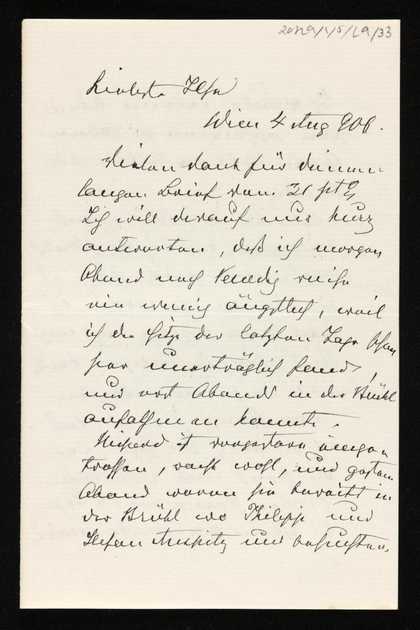 20129/45/29/33
Liebste Ilse
Wien 4 Aug 906.
Vielen Dank für deinen
langen Brief vom 31 pt
Ich will darauf nur kurz
antworten, daß ich morgen
Abend nach Venedig reise
ein wenig ängstlich, weil
ich die Hitze der letzten Tage schon
hier unerträglich fand,
und erst Abends in der Brühl
aufathmen konnte.
ist vorgestern
troffen, recht wohl, und gestern
Abend waren sie bereits in
der Brühl wo Philipp und
Stefan Auspitz uns besuchten.